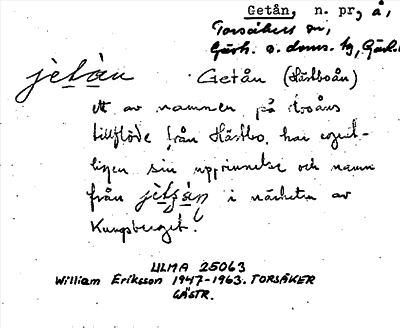 Getån, n. pr, å,
Torsåkers sn,
Gävh. o. doms. tg, Gävle.
jètàn Getån (Hästboån)
ett av namnen på boåns
tillflöde från Hästbo, har egent-
ligen sin upprinnelse och namn
från jètàn i närheten av
Kungsberget.
ULMA 25063
William Eriksson 1947-1963. TORSÅKER
GÄSTR.